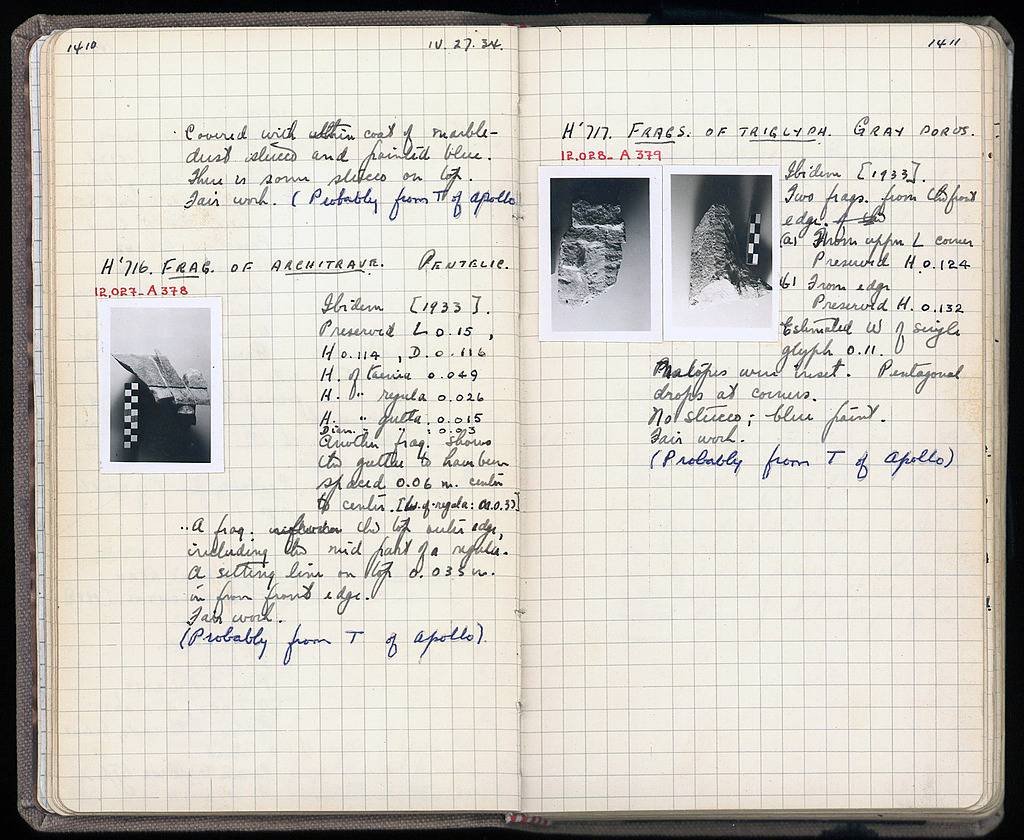 1410
IV. 27. 34.
Covered with thin coat of marble-
dust stucco and painted blue.
There is some stucco on top.
Fair work. (Probably from T of Apollo
H'716. FRAG. OF ARCHITRAVE. PENTELIC.
12.027-A378
Ibidem [1933].
Preserved L 0.15,
H 0.114, D. 0.116
H. of taenia 0.049
H. " regula 0.026
H. " gutta. 0.015
Diam. " " : 0.03
Another frag. shows
the guttae to have been
spaced 0.06 m. center
to center. [W. of regula:
A frag. the top outer edge,
including the mid part of a regula.
A setting line on top 0.035 m.
in from front edge.
Fair work.
(Probably from T of Apollo).
1411
H'717. FRAGS. OF TRIGLYPH. GRAY POROS.
12.028-A379
Ibidem [1933].
Two frags. from the front
edge.
(a) From upper L corner
Preserved H. 0.124
(b) From edge
Preserved H. 0.132
Estimated W of single
glyph 0.11.
Metopes were inset. Pentagonal
drops at corners.
No stucco; blue paint.
Fair work.
(Probably from T of Apollo)